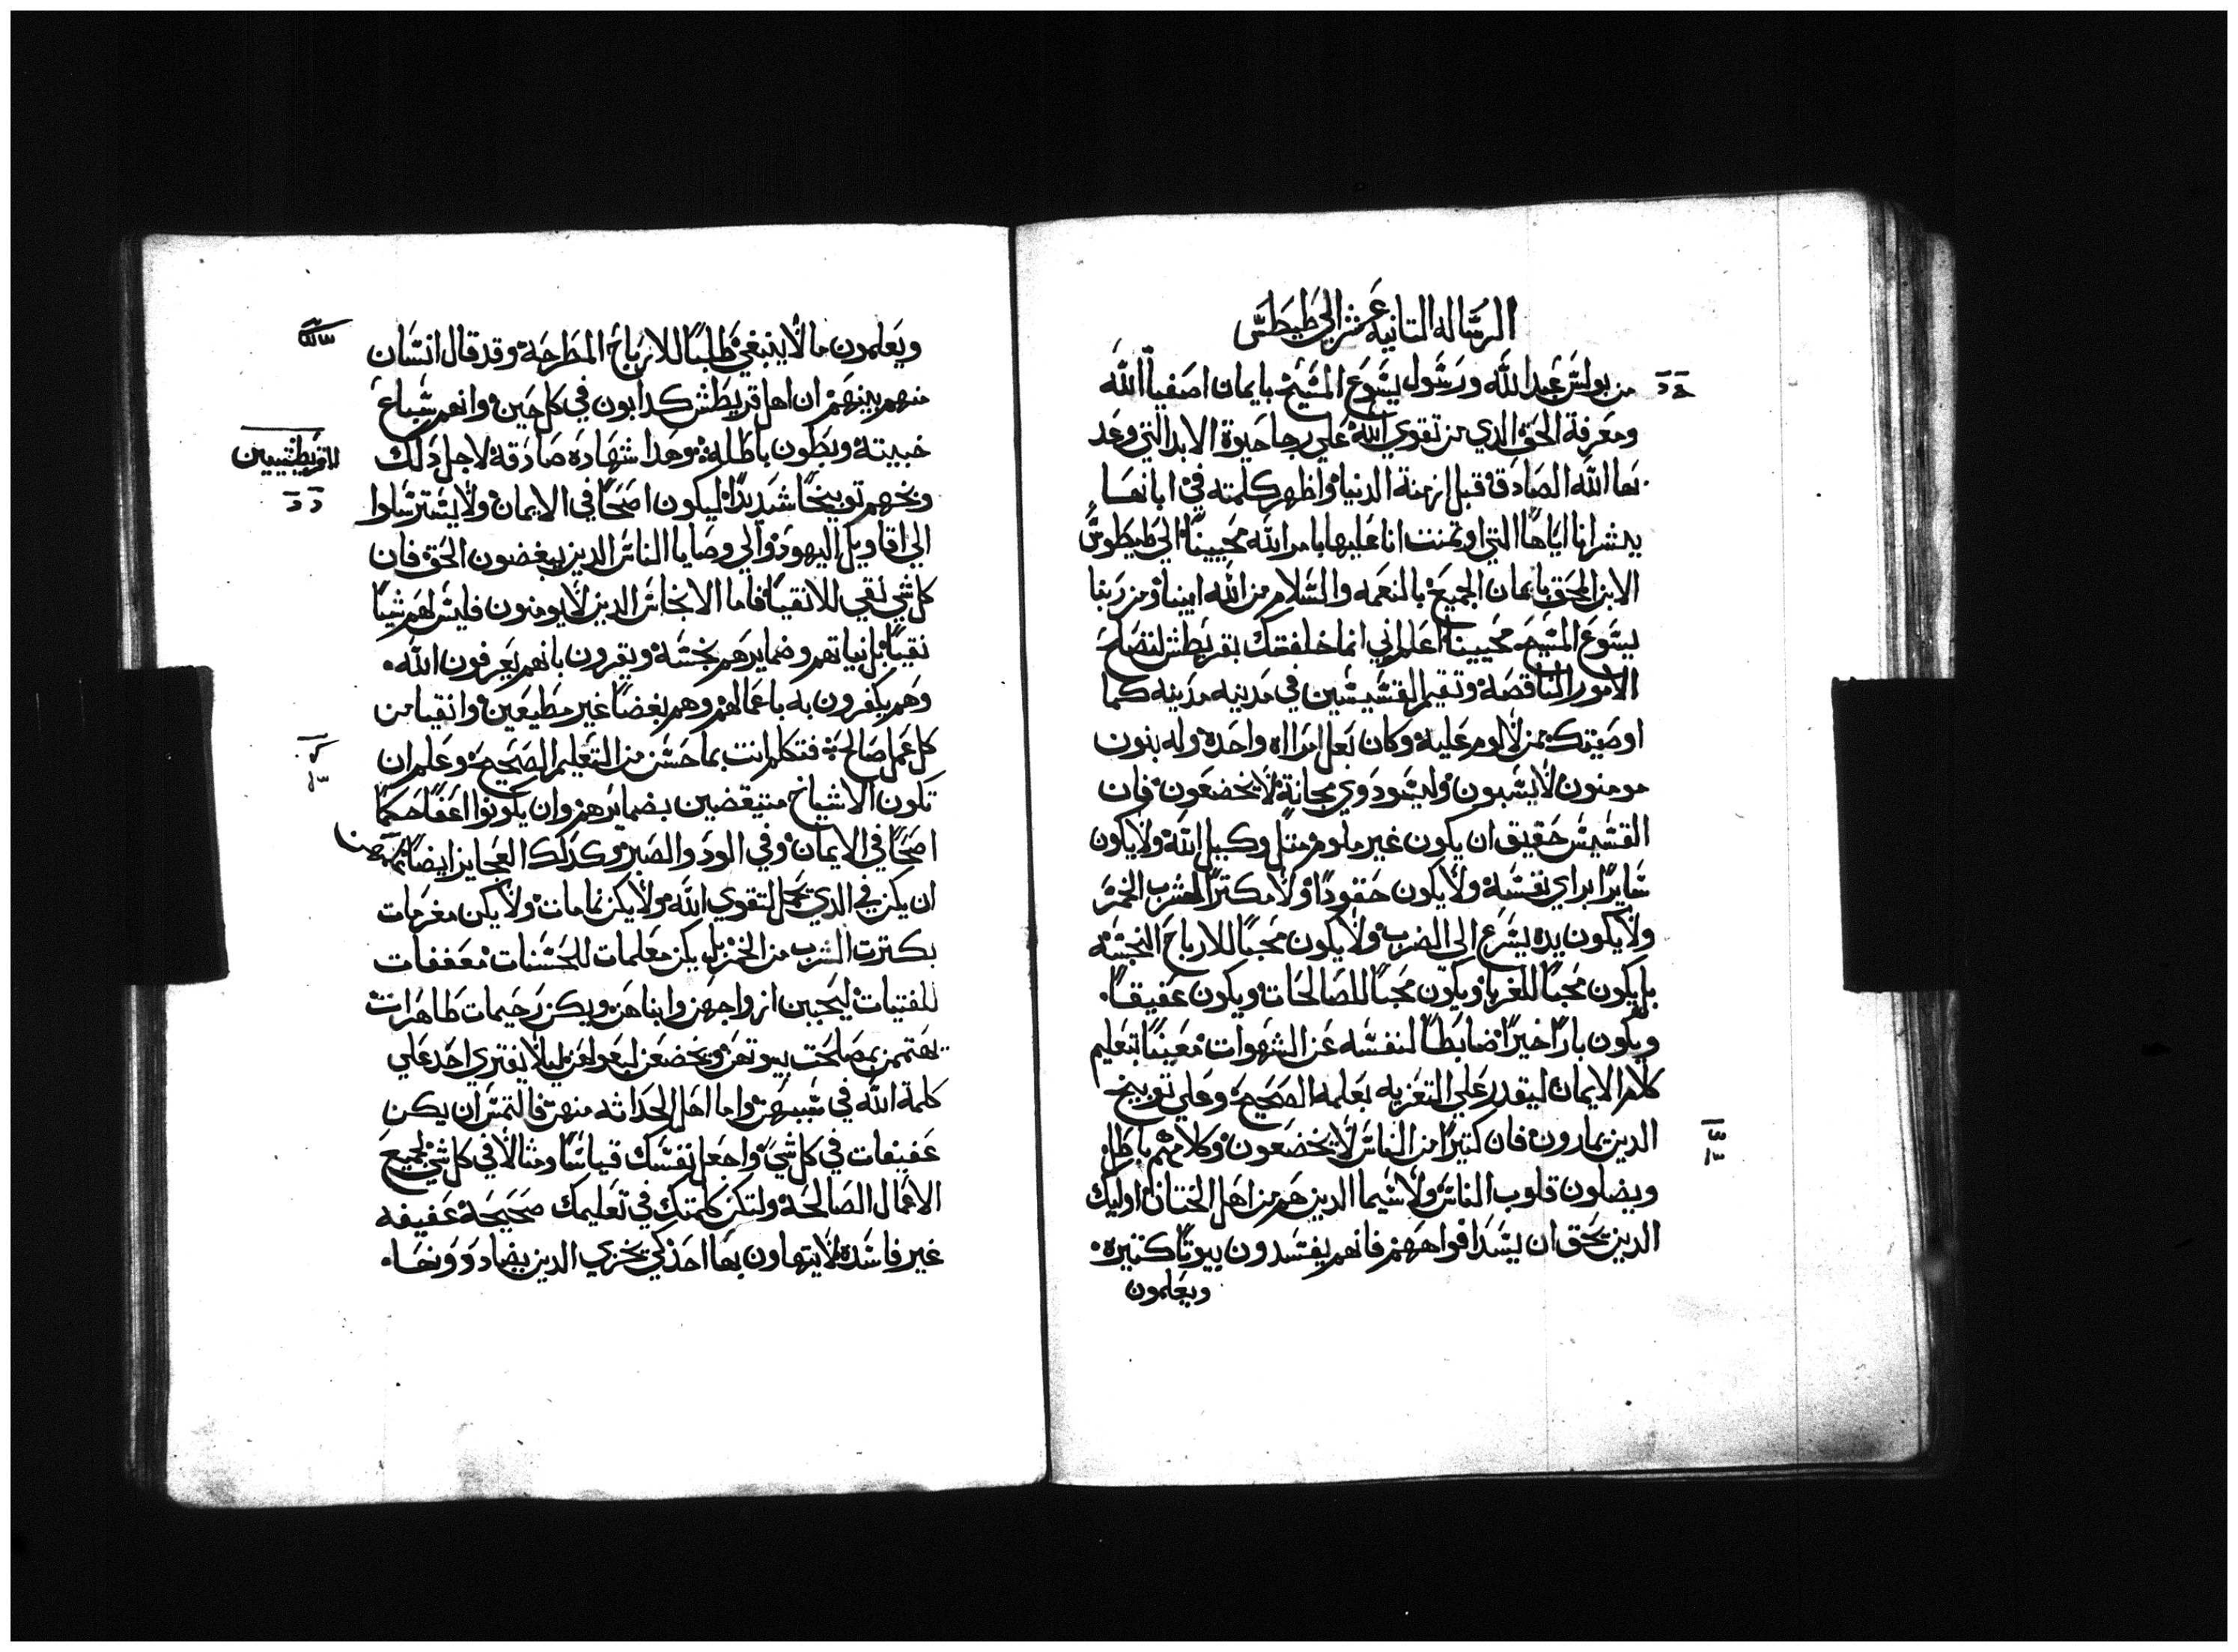 الرساله التانيه عشر الي طيطس
من بولس عبد الله ورسول يسوع المسيح بايمان اصفيا الله
ومعرفة الحق الدي من تقوي الله علي رجا حيوة الابد التي وعد
بها الله الصادق قبل ازمنة الدنيا واظهر كلمته في ابانها
ببشرانا اياها التي اوتمنت انا عليها بامر الله محيينا الي طيطوس
الابن المحق بايمان الجميع بالنعمه والسلام من الله ابينا ومن ربنا
يسوع المسيح محيينا اعلم اني انما خلفتك بقريطش لتصلح
الامور الناقصة وتقيم القسيسين في مدينه مدينه كما
اوصيتك بمن لا لوم عليه وكان بعل امرااه واحدة وله بنون
مومنون لا يسبون وليسو دوي مجانة لا يخضعون فان
القسيس حقيق ان يكون غير ملوم متل وكيل الله ولا يكون
سايرا براي نفسه ولا يكون حقودا ولا مكترا لشرب الخمر
ولا يكون يده يسرع الي الضرب ولا يكون محبا للارباح النجسه
بل يكون محبا للغربا ويكون محبا للصالحات ويكون عفيفا
ويكون بارا خيرا ضابطا لنفسه عن الشهوات معينا بتعليم
كلام الايمان ليقدر علي التعزيه بعلمه الصحيح وعلي توبيخ
الدين يمارون فان كتيرا من الناس لا يخضعون وكلامهم باطل
ويضلون قلوب الناس ولا سيما الدين هم من اهل الختان اوليك
الدين يحق ان يسد افواههم فانهم يفسدون بيوتا كتيره
ويعلمون
ويعلمون ما لا ينبغي طلبا للارباح المطرحة وقد قال انسان
منهم بينهم ان اهل قريطش كدابون في كل حين وانهم سباع
خبيتة وبطون باطله وهدا شهاده صادقة لاجل دلك
للقريطيسيين
وبخهم توبيخا شديدا ليكون اصحا في الايمان ولا يسترسلوا
الي اقاويل اليهود والي وصايا الناس الدين يبغضون الحق فان
كل شي نقي للانقيا فاما الانجاس الدين لا يومنون فليس لهم شيا
نقيا بل نياتهم وضمايرهم نجسة ويقرون بانهم يعرفون الله
وهم يكفرون به باعمالهم وهم بغضا غير مطيعين وانقيا من
كل عمل صالح فتكلم انت بما حسن من التعليم الصحيح وعلم ان
تكون الاشياخ متيقضين بضمايرهم وان يكونوا اعفا حكما
اصحا في الايمان وفي الود والصبر وكدلك العجايز ايضا
ان يكن في الدي يجمل لتقوي الله ولا يكن نمامات ولا يكن مغرمات
بكترت الشرب من الخمر بل يكن معلمات للحسنات معففات
للفتيات ليحببن ازواجهن وابناهن ويكن رحيمات طاهرات
يهتممن بمصالحت بيوتهن ويخضعن لبعولهن ليلا يفتري احد علي
كلمة الله في سببهن واما اهل الحداثه منهن فالتمس ان يكن
عفيفات في كل شي واجعل نفسك قياسا ومثالا في كل شي لجميع
الاعمال الصالحة ولتكن كلمتك في تعليمك صحيحة عفيفه
غير فاسدة لا يتهاون بها احد كي يخزي الدين يضادوونها